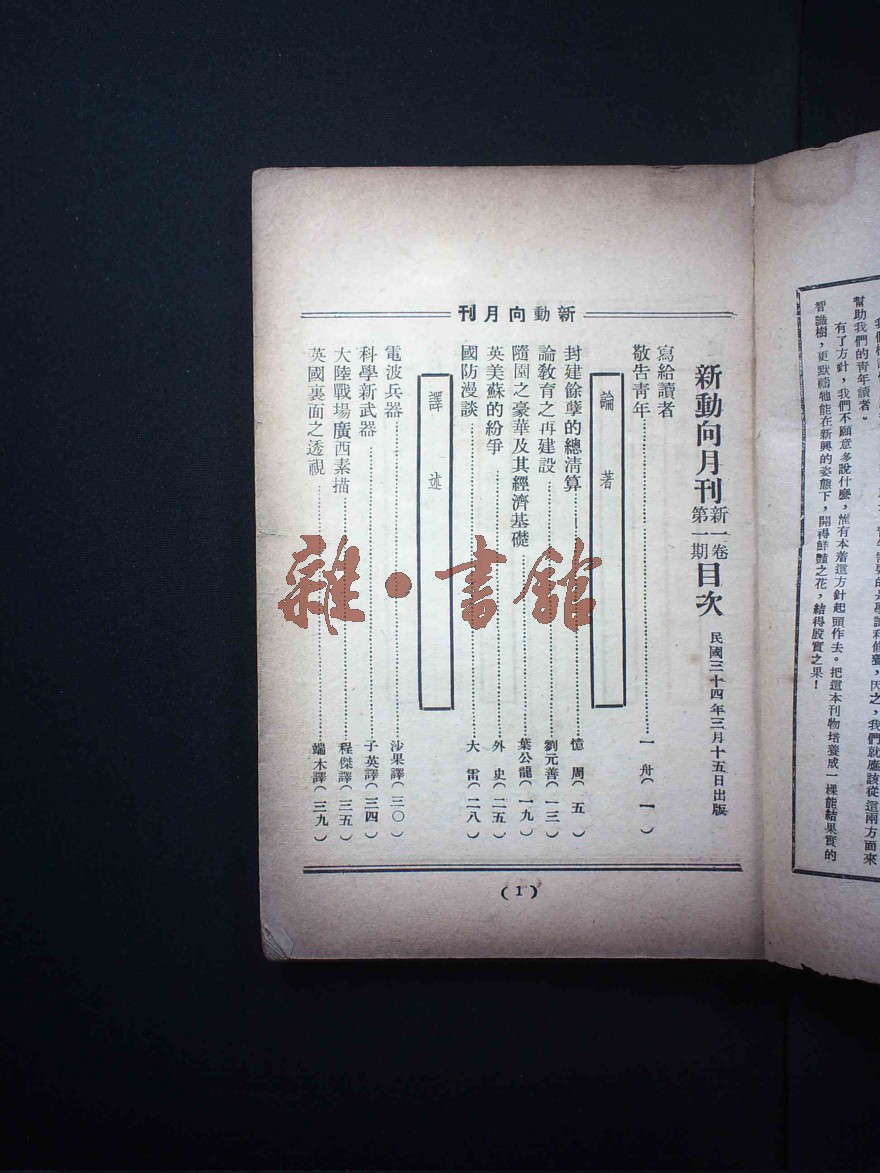 幫助我們的青年讀者。
有了方針，我們不願意多說什麼，惟有本着這方針起頭作去。把這本刊物培養成一棵能結果實的
智識樹，更默禱牠能在新興的姿態下，開得鮮豔之花，結得殷實之果！
新動向月刊
新動向月刊 新一卷第一期 目次
民國三十四年三月十五日出版
寫給讀者
敬告青年……一舟（一）
論著
封建餘孽的總清算……憶周（五）
論敎育之再建設……劉元善（一三）
隨園之豪華及其經濟基礎……葉公龍（一九）
英美蘇的紛爭……外史（二五）
國防漫談……大雷（二八）
譯述
電波兵器……沙果譯（三〇）
科學新武器……子英譯（三四）
大陸戰場廣西素描……程傑譯（三五）
英國裏面之透視……端木譯（三九）
（1）
雜·書館